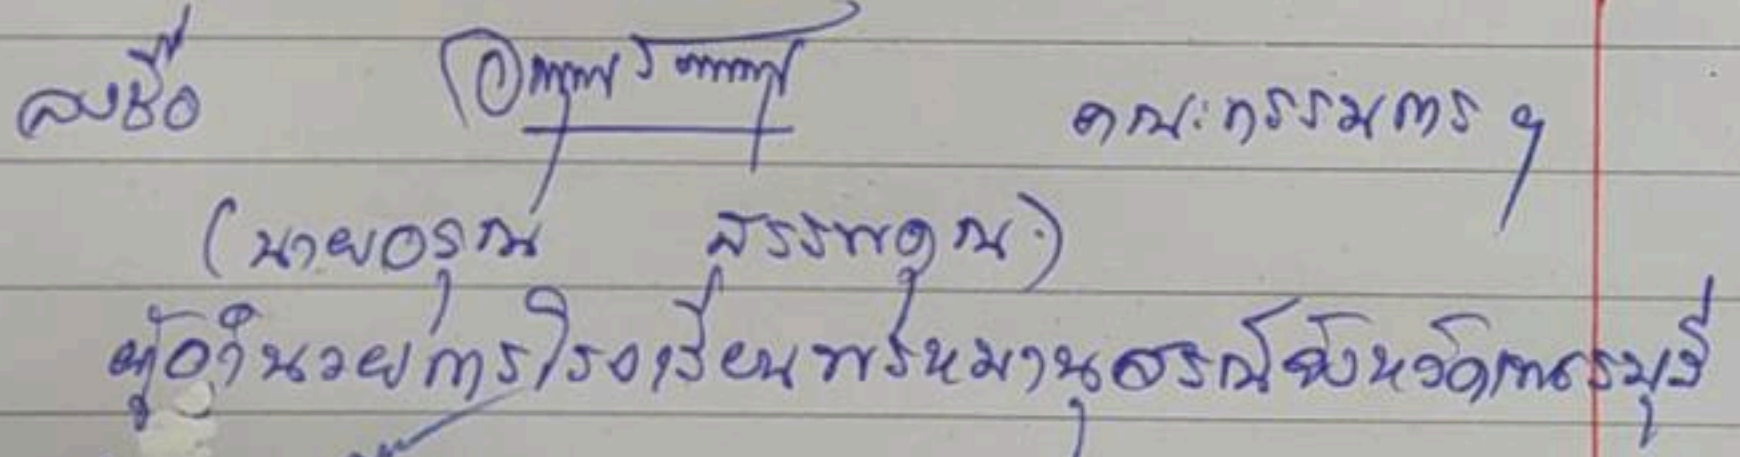 ลงชื่อ คณะกรรมการฯ
(นายอรุณ สรรพคุณ)
ผู้อำนวยการโรงเรียนพรหมานุสรณ์จังหวัดเพชรบุรี